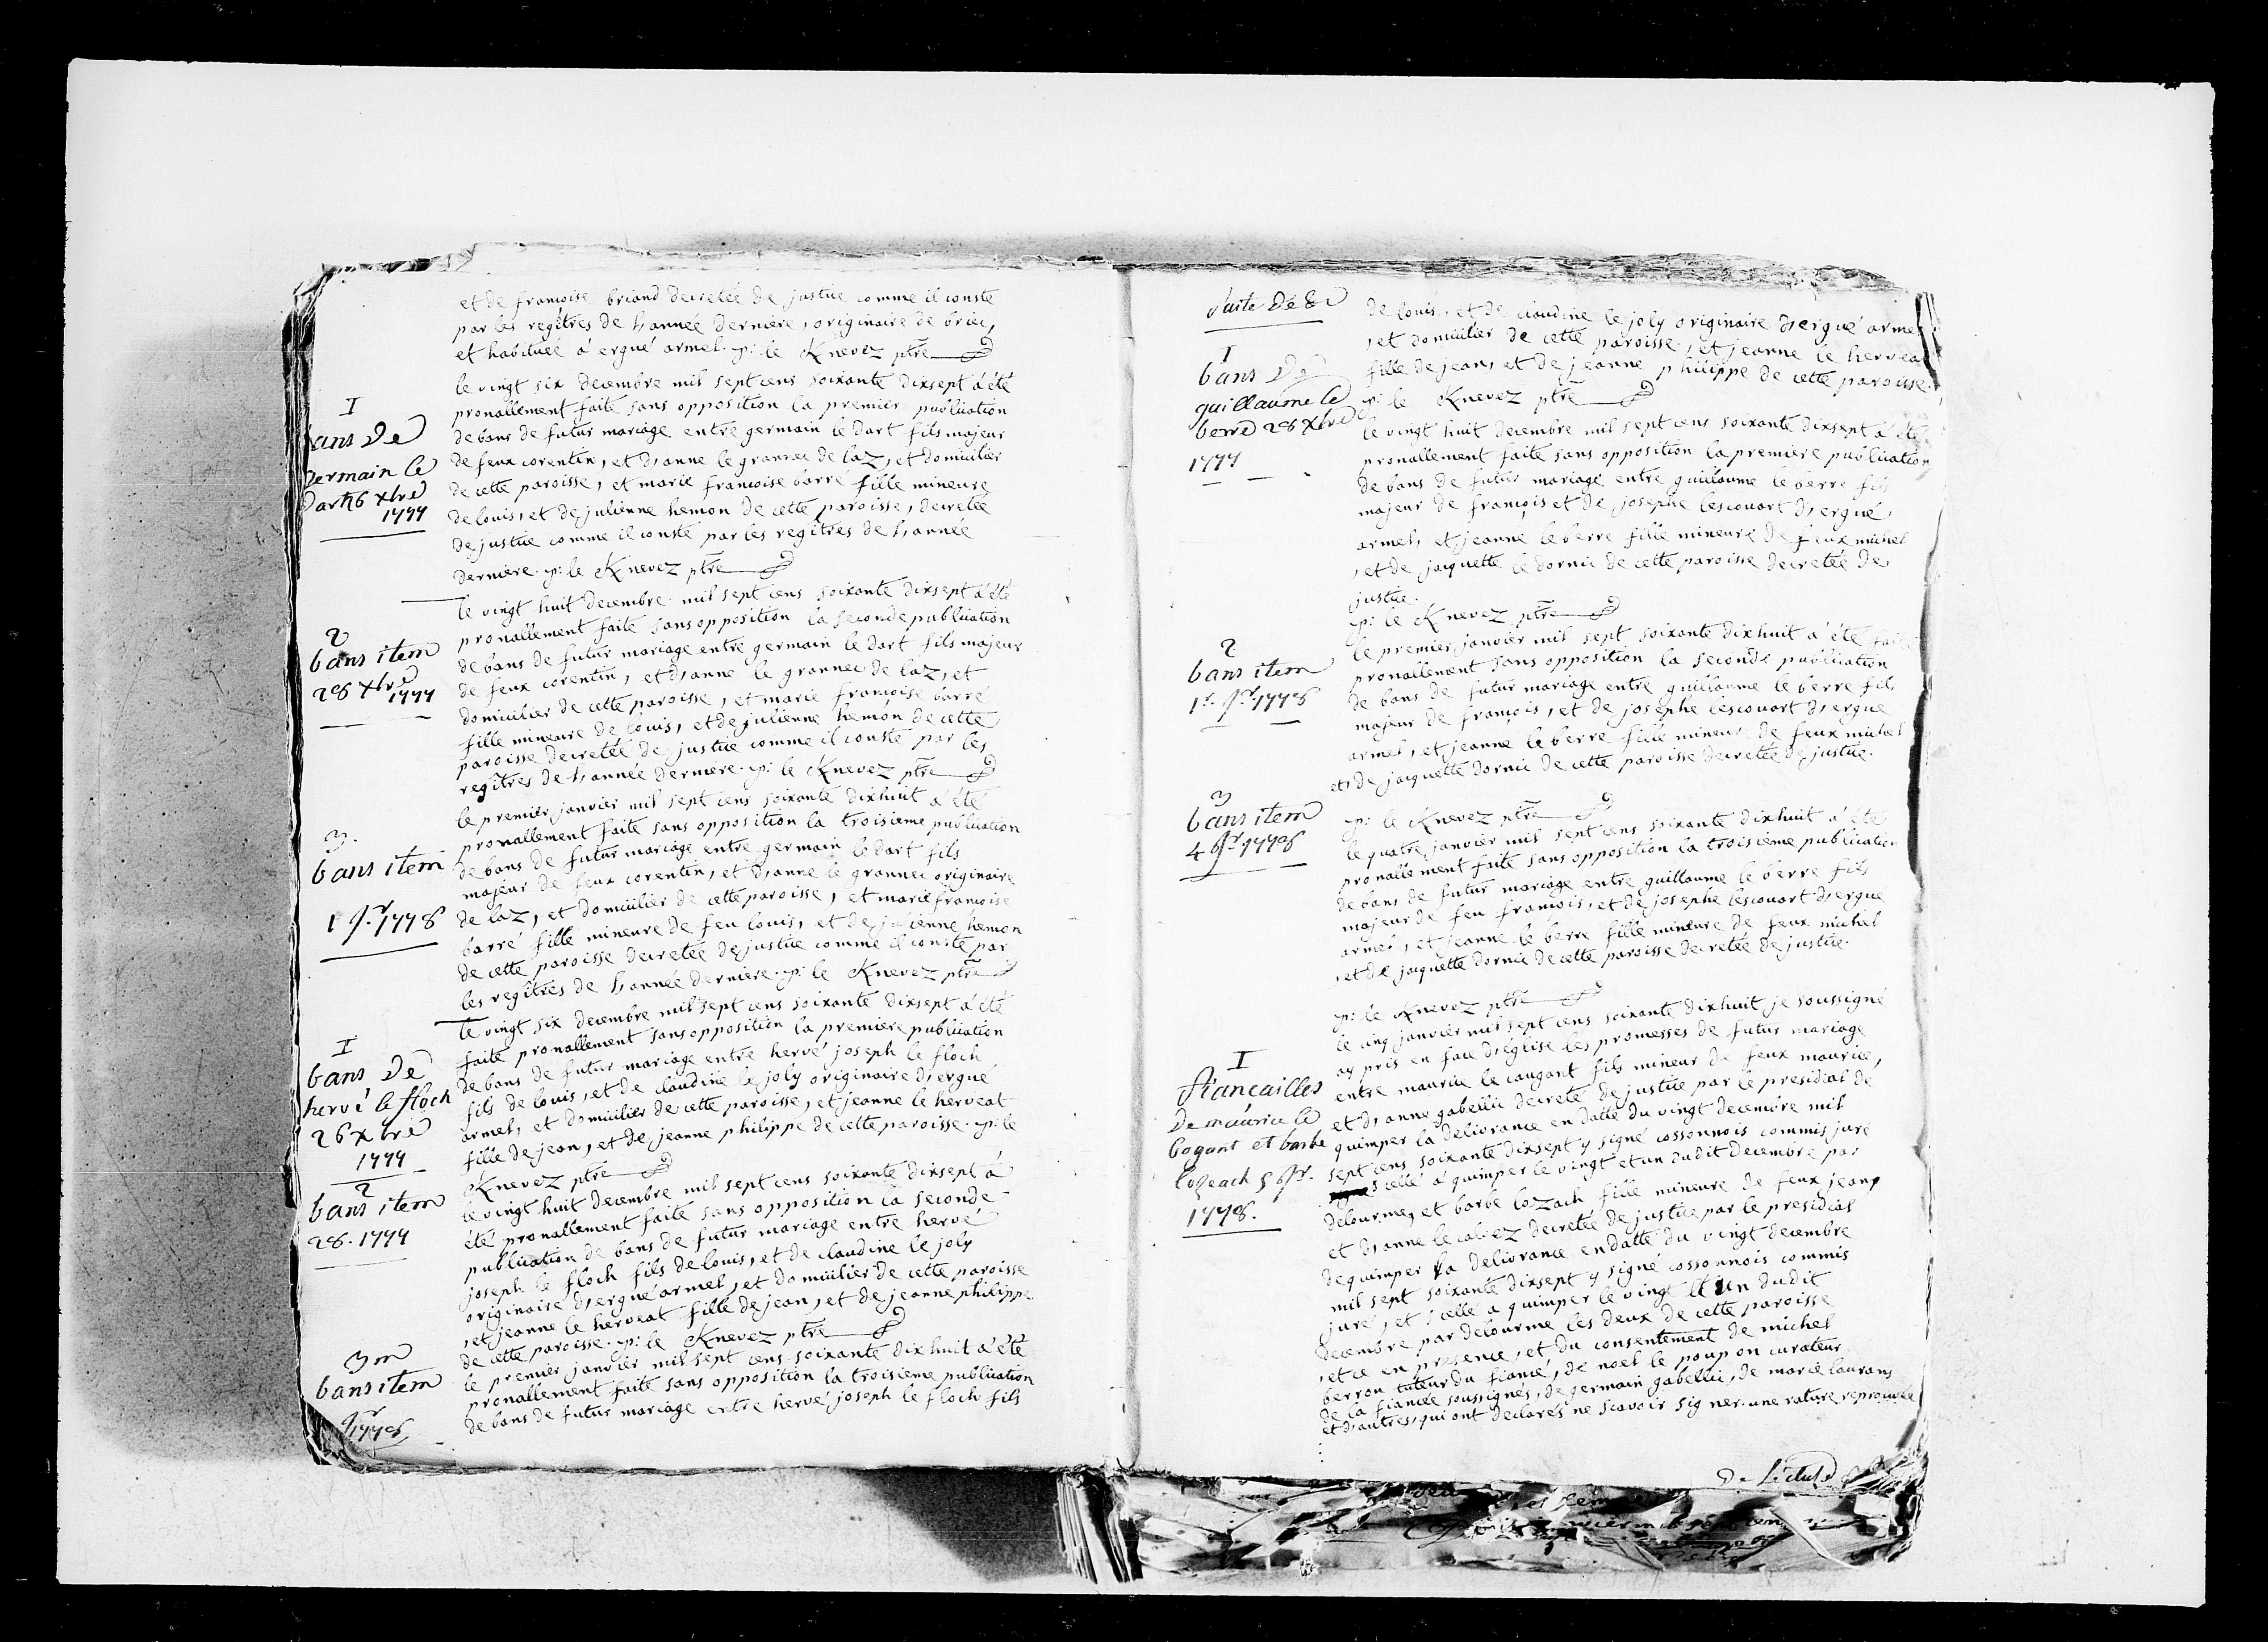 et de francoise briand decretée de justice comme il conste
par les regîtres de l'année derniere, originaire de briec,
et habituée á ergué armel. p: le Knevez ptre
I
bans de
germain le
dart 26 xbre
1777
le vingt six decembre mil sept cens soixante dixsept a été
pronallement faite sans opposition la premiere publication
de bans de futur mariage entre germain le dart fils majeur
de feux corentin, et d'anne le grannec de laz, et domicilier
de cette paroisse, et marie francoise barre fille mineure
de louis, et de julienne hemon de cette paroisse, decretée
de justice comme il conste par les regîtres de l'année
derniere. p: le Knevez ptre
2
bans item
28 xbre
1777
le vingt huit decembre mil sept cens soixante dixsept a été
pronallement faite sans opposition la seconde publication
de bans de futur mariage entre germain le dart fils majeur
de feux corentin, et d'anne le grannec de laz, et
domicilier de cette paroisse, et marie francoise barré
fille mineure de louis, et de julienne hemon de cette
paroisse decretée de justice comme il conste par les
regîtres de l'année derniere. p: le Knevez ptre
3.
bans item
1 jr. 1778
le premier janvier mil sept cens soixante dixhuit a été
pronallement faite sans opposition la troisieme publication
de bans de futur mariage entre germain le dart fils
majeur de feux corentin, et d'anne le grannec originaire
de laz, et domicilier de cette paroisse, et marie francoise
barré fille mineure de feu louis, et de julienne hemon
de cette paroisse decretée de justice comme il conste par
les regîtres de l'année derniere. p: le Knevez ptre
I
bans de
hervé le floch
26 xbre
1777
le vingt six decembre mil sept cens soixante dixsept a été
faite pronallement sans opposition la premiere publication
de bans de futur mariage entre hervé joseph le floch
fils de louis, et de claudine le joly originaire d'ergué
armel, et domicilier de cette paroisse, et jeanne le herveat
fille de jean, et de jeanne philippe de cette paroisse. p: le
Knevez ptre
2
bans item
28. 1777
le vingt huit decembre mil sept cens soixante dixsept a
été pronallement faite sans opposition la seconde
publication de bans de futur mariage entre hervé
joseph le floch fils de louis, et de claudine le joly
originaire d'ergué armel, et domicilier de cette paroisse
, et jeanne le herveat fille de jean, et de jeanne philippe
de cette paroisse. p: le Knevez ptre
3m
bans item
jr 1778
le premier janvier mil sept cens soixante dixhuit a été
pronallement faite sans opposition la troisieme publication
de bans de futur mariage entre hervé joseph le floch fils
Suite de &c
de louis, et de claudine le joly originaire d'ergué armel
, et domicilier de cette paroisse, et jeanne le herveat
fille de jean, et de jeanne philippe de cette paroisse.
p: le Knevez ptre
I
bans de
guillaume le
berre 28 xbre
1777
le vingt huit decembre mil sept cens soixante dixsept a été
pronallement faite sans opposition la premiere publication
de bans de futur mariage entre guillaume le berre fils
majeur de françois et de josephe lescouart d'ergué
armel, et jeanne le berre fille mineure de feux michel
, et de jaquette le dornic de cette paroisse decretée de
justice.
p: le Knevez ptre
2
bans item
1r. jr. 1778
le premier janvier mil sept soixante dixhuit a été faite
pronallement sans opposition la seconde publication
de bans de futur mariage entre guillaume le berre fils
majeur de francois, et de josephe lescouart d'ergue
armel, et jeanne le berre fille mineur de feux michel
et de jaquette dornic de cette paroisse decretée de justice.
3
bans item
4 jr. 1778
p: le Knevez ptre
le quatre janvier mil sept cens soixante dixhuit a été
pronallement faite sans opposition la troisieme publication
de bans de futur mariage entre guillaume le berre fils
majeur de feu francois, et de josephe lescouart d'ergue
armel, et jeanne le berre fille mineure de feux michel
, et de jaquette dornic de cette paroisse decretée de justice.
p: le Knevez ptre
I
fiancailles
de maurice le
cogant et barbe
lozeach 5 jr.
1778.
le cinq janvier mil sept cens soixante dixhuit je soussigné
ay pris en face d'église les promesses de futur mariage
entre maurice le caugant fils mineur de feux maurice,
et d'anne gabellic decreté de justice par le presidial de
quimper la delivrance en datte du vingt decembre mil
sept cens soixante dixsept y signé cossonnois commis juré
scellé á quimper le vingt et un dudit decembre par
delourme, et barbe lozach fille mineure de feux jean
et d'anne le calvez decretée de justice par le presidial
de quimper la delivrance en datte du vingt decembre
mil sept soixante dixsept y signé cossonnois commis
juré, et scellé a quimper le vingt et un dudit
decembre par delourme les deux de cette paroisse
, et ce en presence, et du consentement de michel
berrou tuteur du fiancé, de noel le poupon curateur
de la fiancée soussignés, de germain gabellic, de marc laurans
et d'autres, qui ont declarés ne scavoir signer. une rature reprouvée